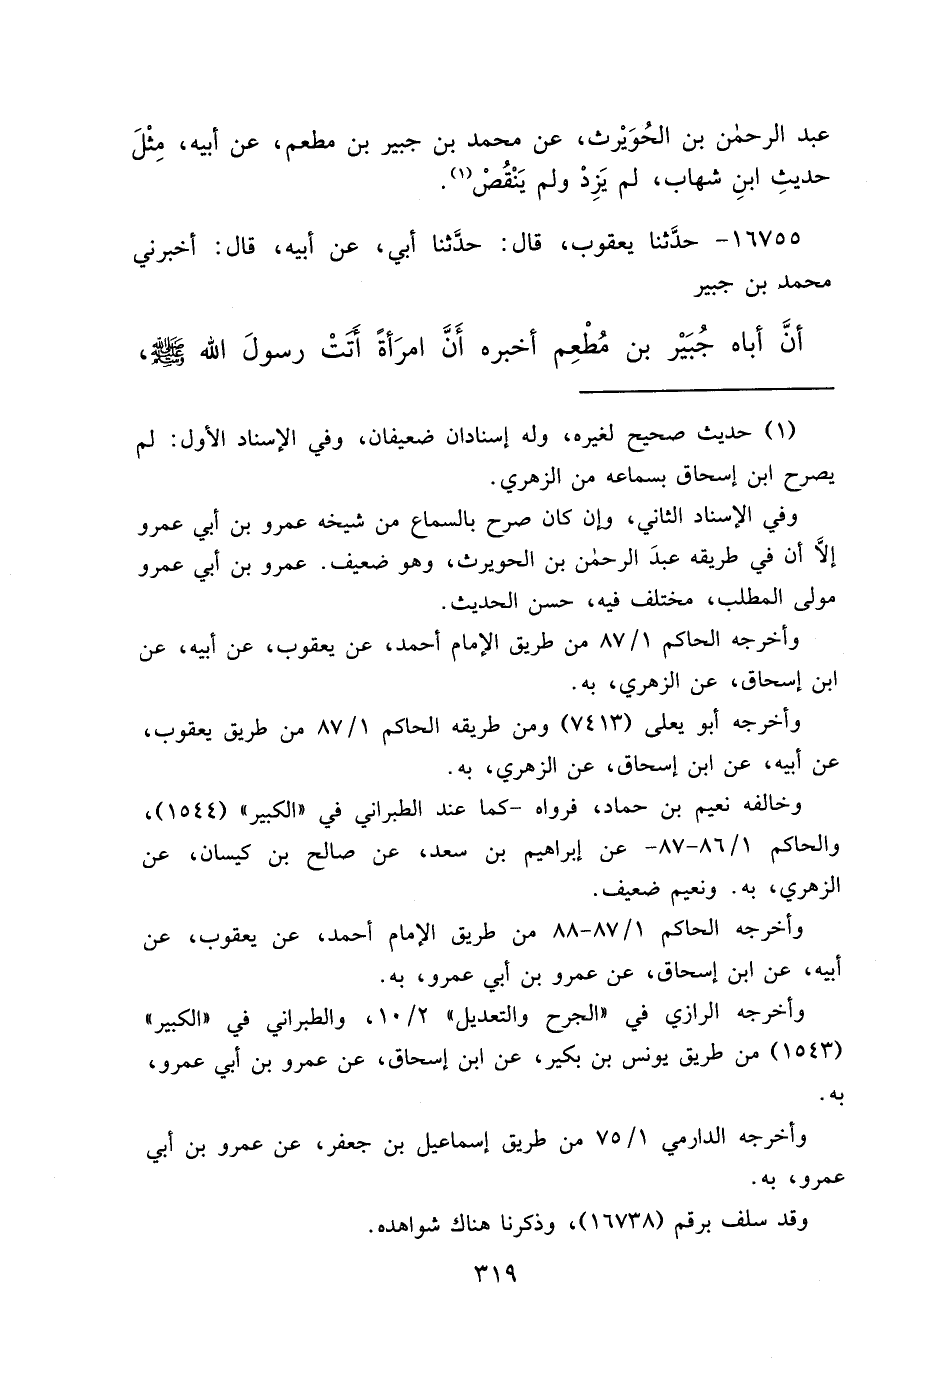 عبد الرحمٰن بن الحُوَيْرث، عن محمد بن جبير بن مطعم، عن أبيه، مِثْلَ
حديثِ ابنِ شهاب، لم يَزِدْ ولم يَنْقُصْ(١).
١٦٧٥٥- حدَّثنا يعقوب، قال: حدَّثنا أبي، عن أبيه، قال: أخبرني
محمد بن جبير
أنَّ أباه جُبَيْر بن مُطْعِم أخبره أَنَّ امرَأةً أَتَتْ رسولَ الله ﷺ،
(١) حديث صحيح لغيره، وله إسنادان ضعيفان، وفي الإسناد الأول: لم
يصرح ابن إسحاق بسماعه من الزهري.
وفي الإسناد الثاني، وإن كان صرح بالسماع من شيخه عمرو بن أبي عمرو
إلاَّ أن في طريقه عبدَ الرحمٰن بن الحويرث، وهو ضعيف. عمرو بن أبي عمرو
مولى المطلب، مختلف فيه، حسن الحديث.
وأخرجه الحاكم ٨٧/١ من طريق الإمام أحمد، عن يعقوب، عن أبيه، عن
ابن إسحاق، عن الزهري، به.
وأخرجه أبو يعلى (٧٤١٣) ومن طريقه الحاكم ٨٧/١ من طريق يعقوب،
عن أبيه، عن ابن إسحاق، عن الزهري، به.
وخالفه نعيم بن حماد، فرواه -كما عند الطبراني في «الكبير» (١٥٤٤)،
والحاكم ٨٦/١-٨٧- عن إبراهيم بن سعد، عن صالح بن كيسان، عن
الزهري، به. ونعيم ضعيف.
وأخرجه الحاكم ٨٧/١-٨٨ من طريق الإمام أحمد، عن يعقوب، عن
أبيه، عن ابن إسحاق، عن عمرو بن أبي عمرو، به.
وأخرجه الرازي في «الجرح والتعديل» ١٠/٢، والطبراني في «الكبير»
(١٥٤٣) من طريق يونس بن بكير، عن ابن إسحاق، عن عمرو بن أبي عمرو،
به.
وأخرجه الدارمي ٧٥/١ من طريق إسماعيل بن جعفر، عن عمرو بن أبي
عمرو، به.
وقد سلف برقم (١٦٧٣٨)، وذكرنا هناك شواهده.
٣١٩